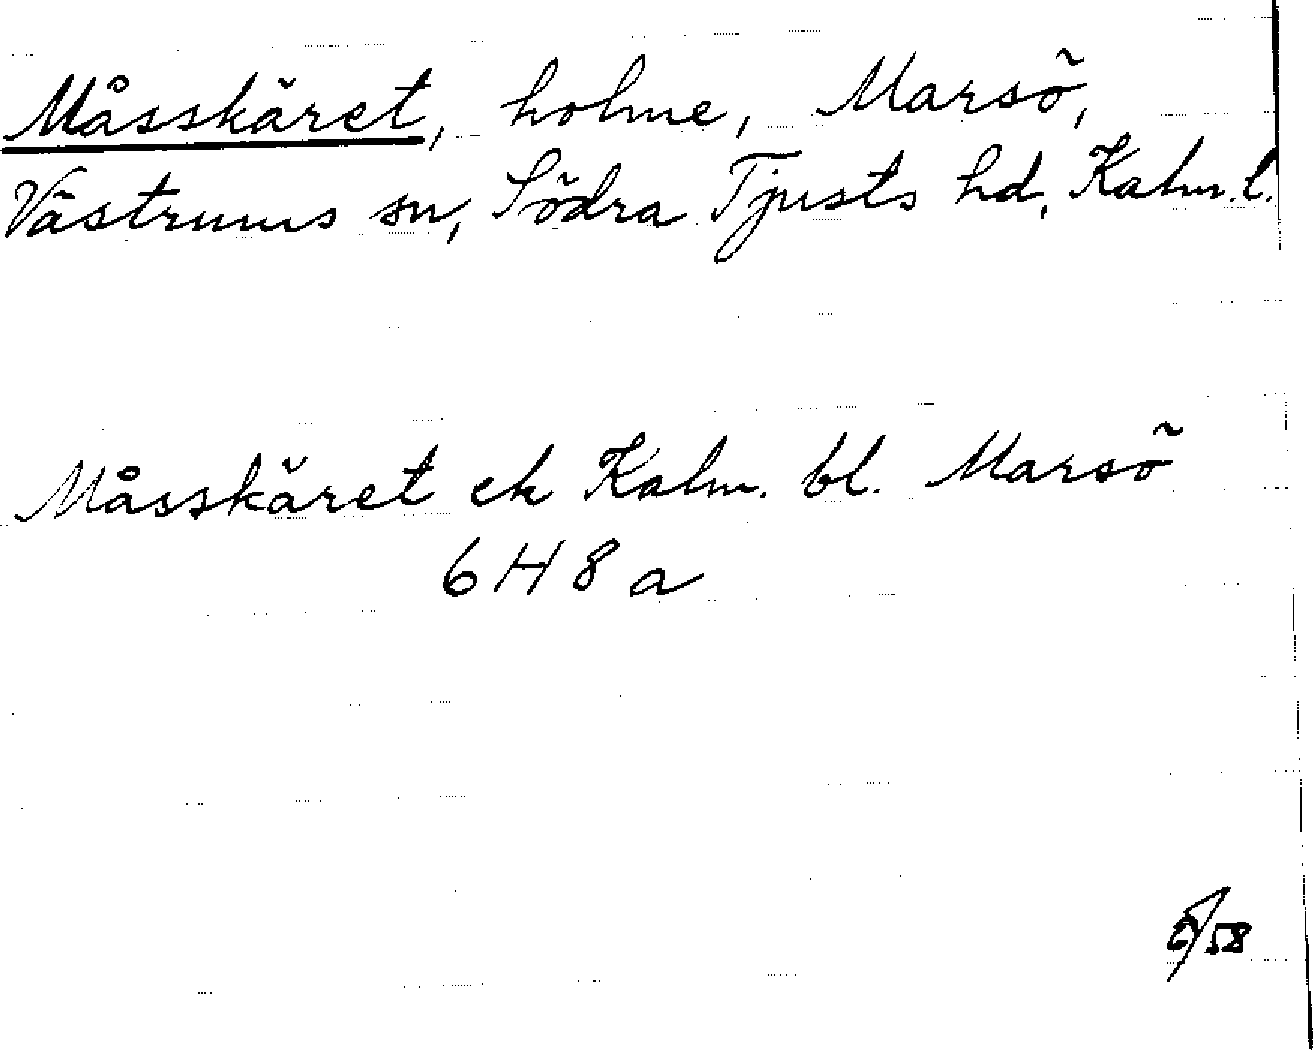 Måsskäret, holme, Marsö,
Västrums sn, Södra Tjusts hd, Kalm. l.
Måsskäret ek Kalm. bl. Marsö
6 H 8 a
6/58